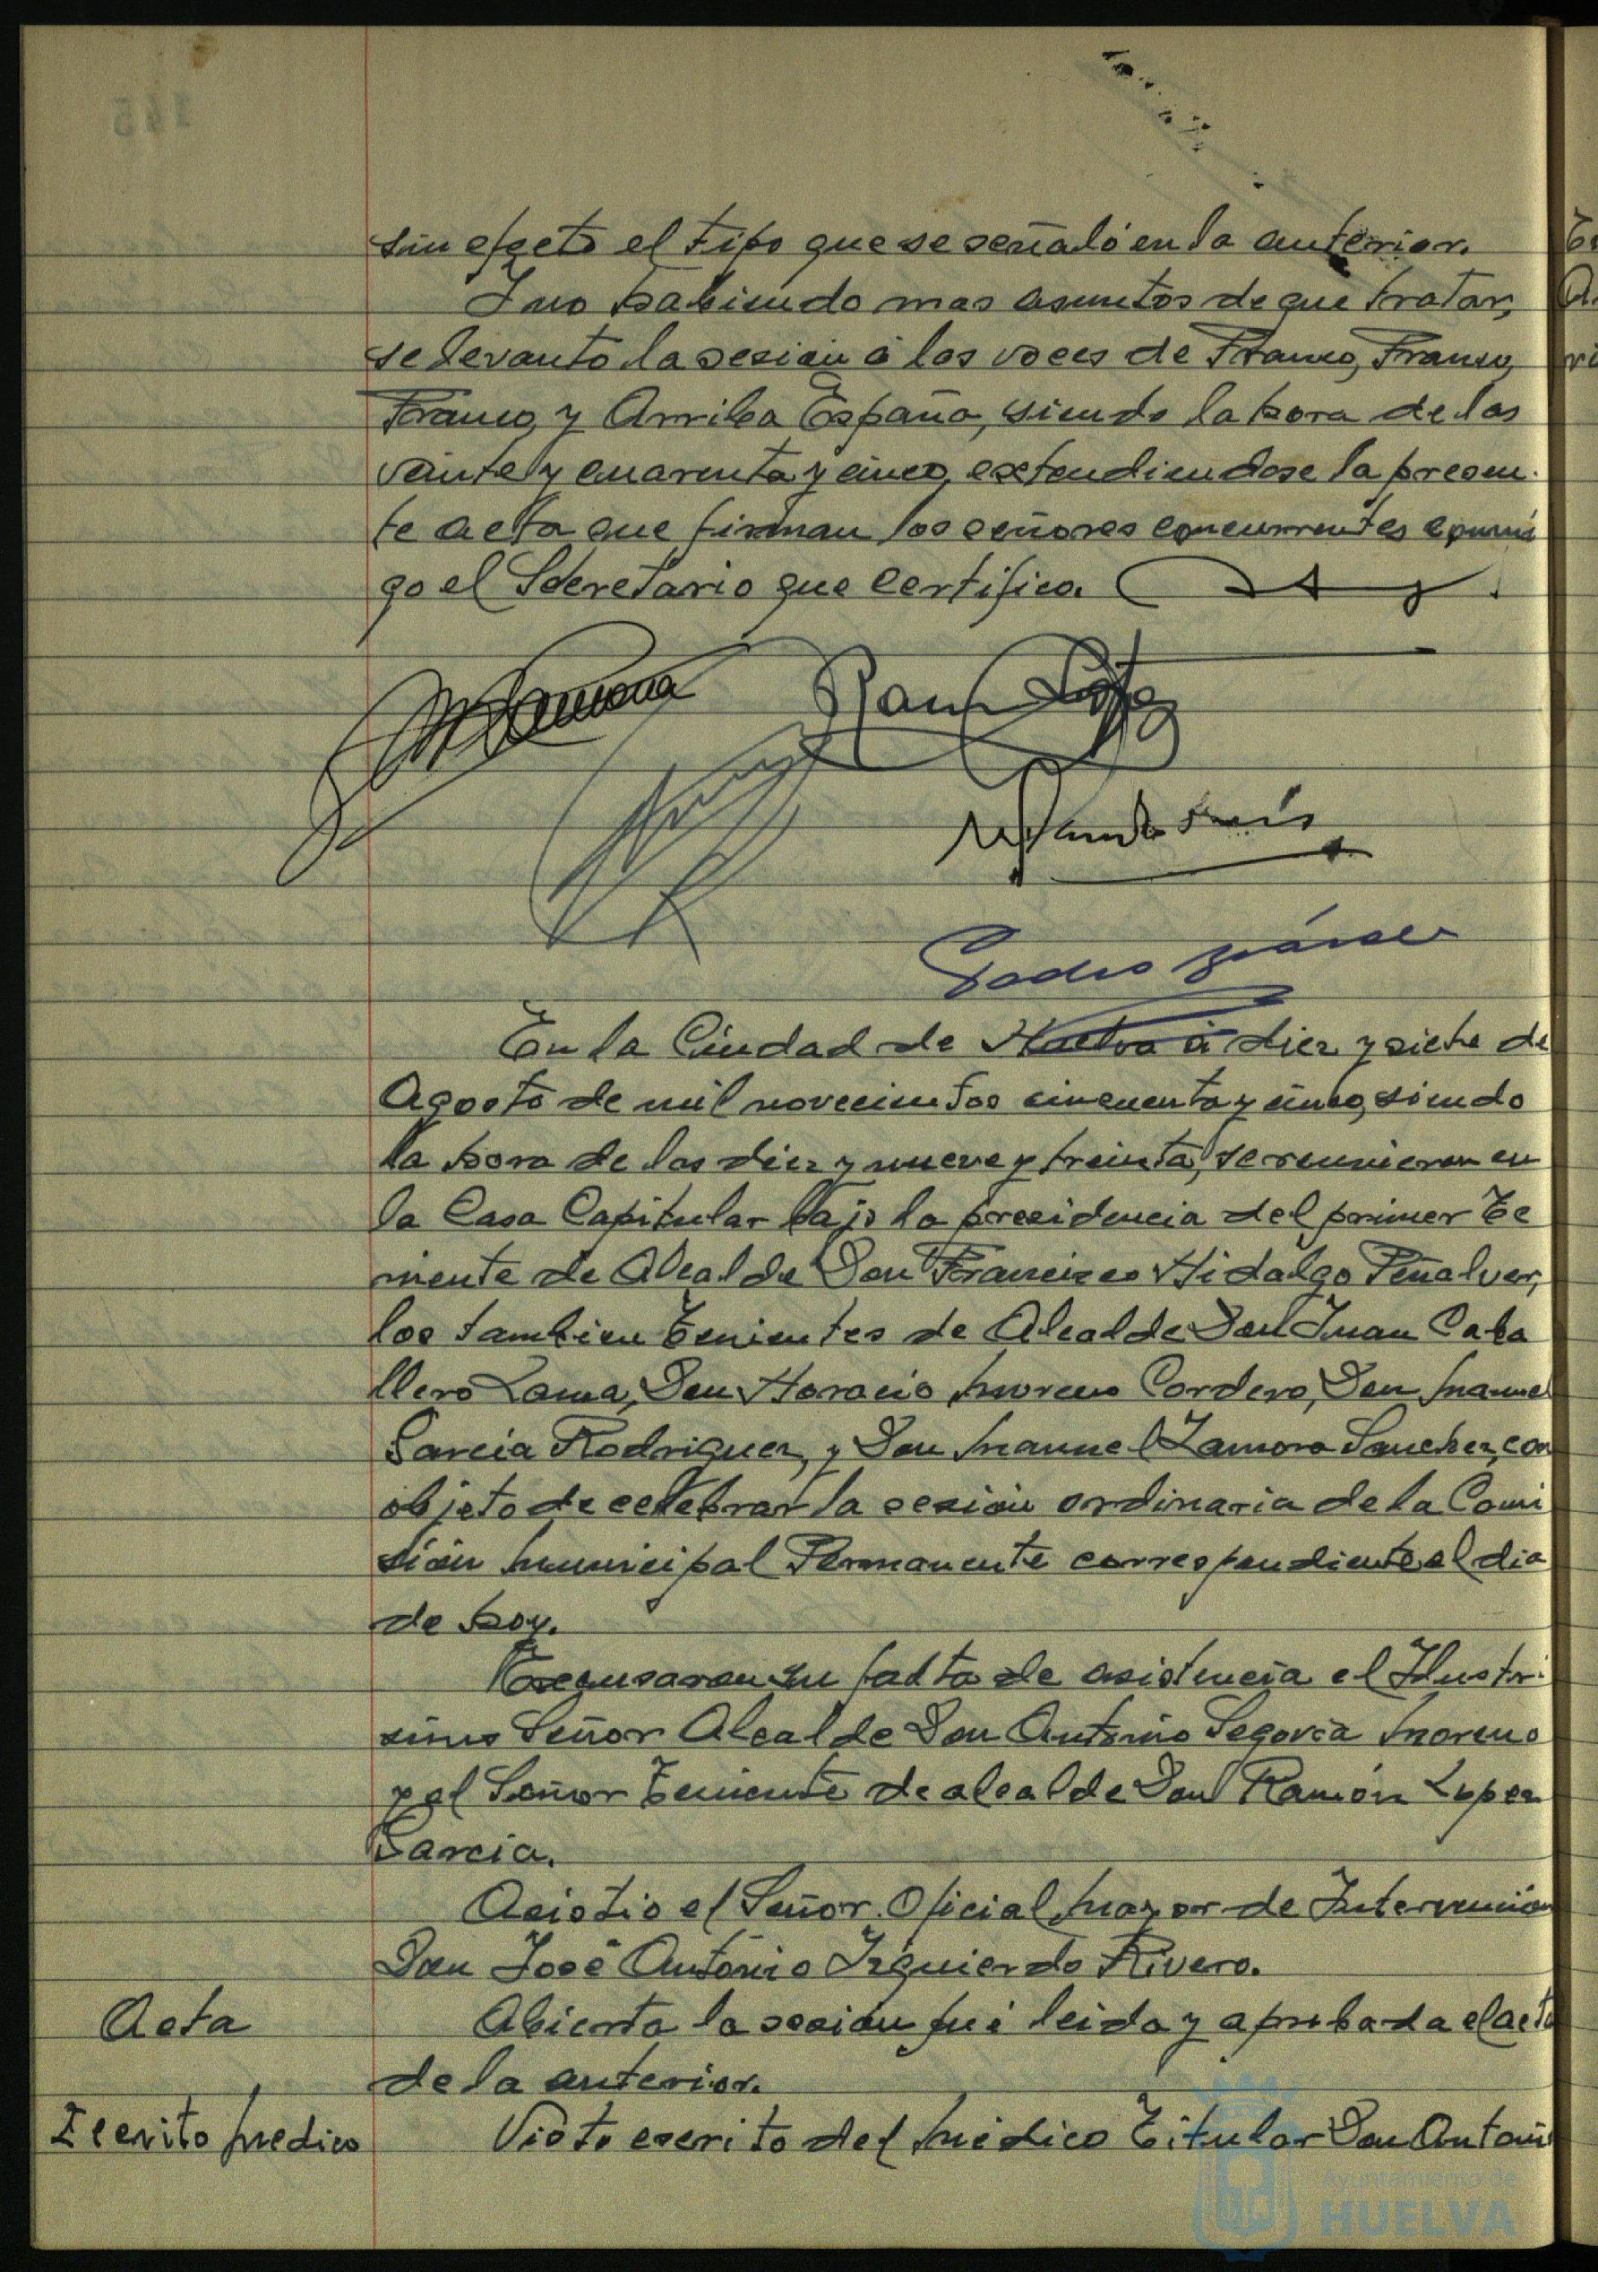 sin efecto el tipo que se señaló en la anterior.
Y no habiendo mas asuntos de que tratar,
se levantó la sesión á los voces de Franco, Franco,
Franco, y Arriba España, siendo la hora de las
veinte y cuarenta y cinco, extendiendose la presen-
te acta que firman los señores concurrentes conmi
go el Secretario que certifica.
Ramón López
Pedro
En la Ciudad de Huelva á diez y siete de
Agosto de mil novecientos cincuenta y cinco, siendo
la hora de las diez y nueve y treinta, se reunieron en
la Casa Capitular bajo la presidencia del primer Te
niente de Alcalde Don Francisco Hidalgo Peñalver,
los tambien Tenientes de Alcalde Don Juan Caba
llero Lama, Don Horacio Moreno Cordero, Don Manuel
Garcia Rodriguez, y Don Manuel Zamora Sanchez, con
objeto de celebrar la sesión ordinaria de la Comi
sión Municipal Permanente correspondiente al dia
de hoy.
Excusaron su falta de asistencia el Ilustri-
simo Señor Alcalde Don Antonio Segovia Moreno
y el Señor Teniente de alcalde Don Ramón Lopez
Garcia.
Asistio el Señor Oficial Mayor de Intervención
Don José Antonio Izquierdo Rivero.
Acta
Abierta la sesión fué leida y aprobada el acta
de la anterior.
Escrito Medico
Visto escrito del Médico Titular Don Antoni
Ayuntamiento de
HUELVA